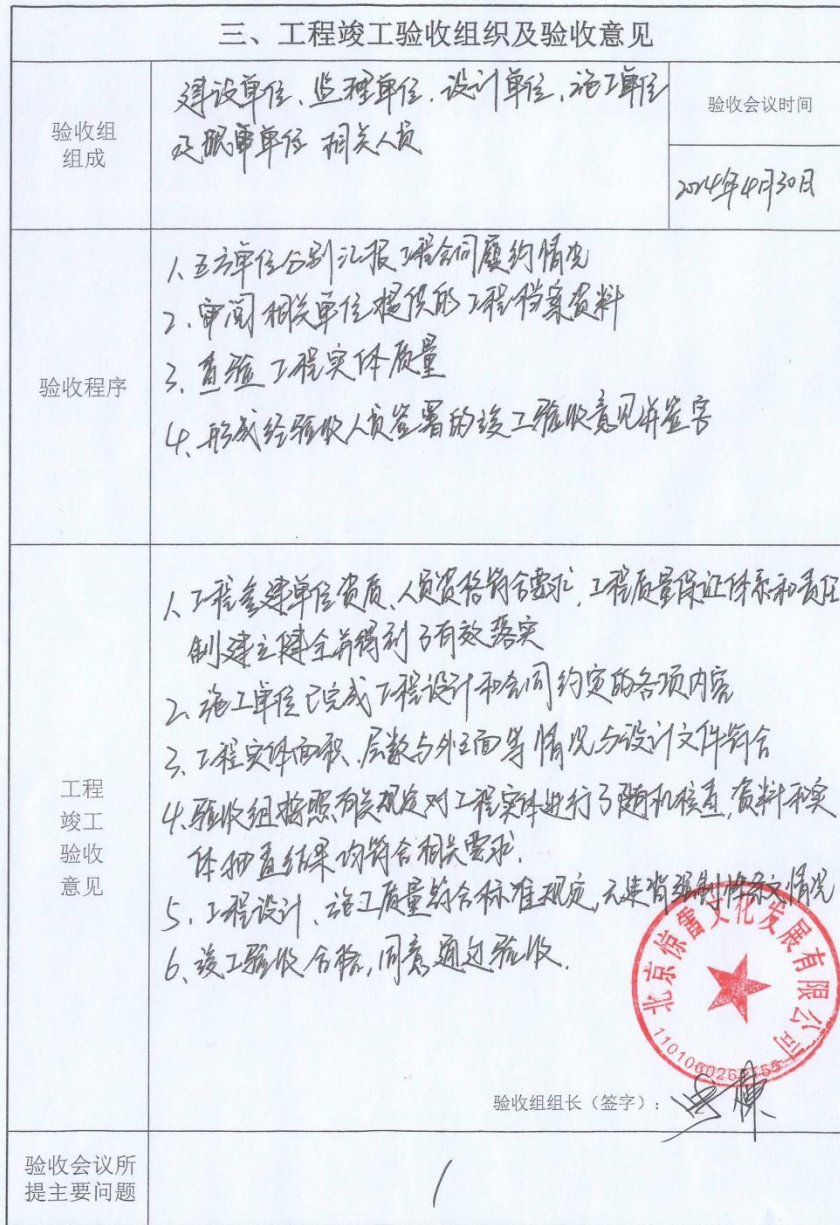 三、工程竣工验收组织及验收意见
验收组
组成
建设单位、监理单位、设计单位、施工单位
及跟审单位 相关人员
验收会议时间
2024年4月30日
验收程序
1、五方单位分别汇报工程合同履约情况
2、审阅相关单位提供的工程档案资料
3、查验工程实体质量
4、形成经验收人员签署的竣工验收意见并签字
工程
竣工
验收
意见
1、工程参建单位资质、人员资格符合要求,工程质量保证体系和责任
制建立健全并得到了有效落实
2、施工单位已完成工程设计和合同约定的各项内容
3、工程实体面积、层数与外立面等情况与设计文件符合
4、验收组按照有关规定对工程实体进行了随机核查,资料和实
体抽查结果均符合相关要求.
5、工程设计、施工质量符合标准规定,无违背强制性条文情况
6、竣工验收合格,同意通过验收.
北京惊雷文化发展有限公司
验收组组长(签字):
验收会议所
提主要问题
/